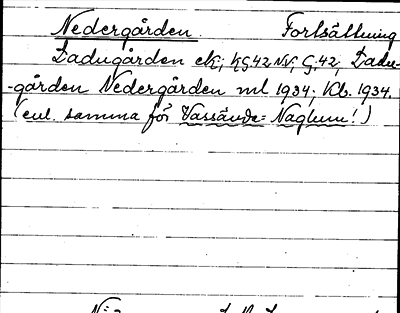 Nedergården. Fortsättning
Ladugården ek; KG42 NV, G.42, Ladu-
-gården Nedergården ml 1934; Kb. 1934.
(enl. samma för Vassända=Naglum!)